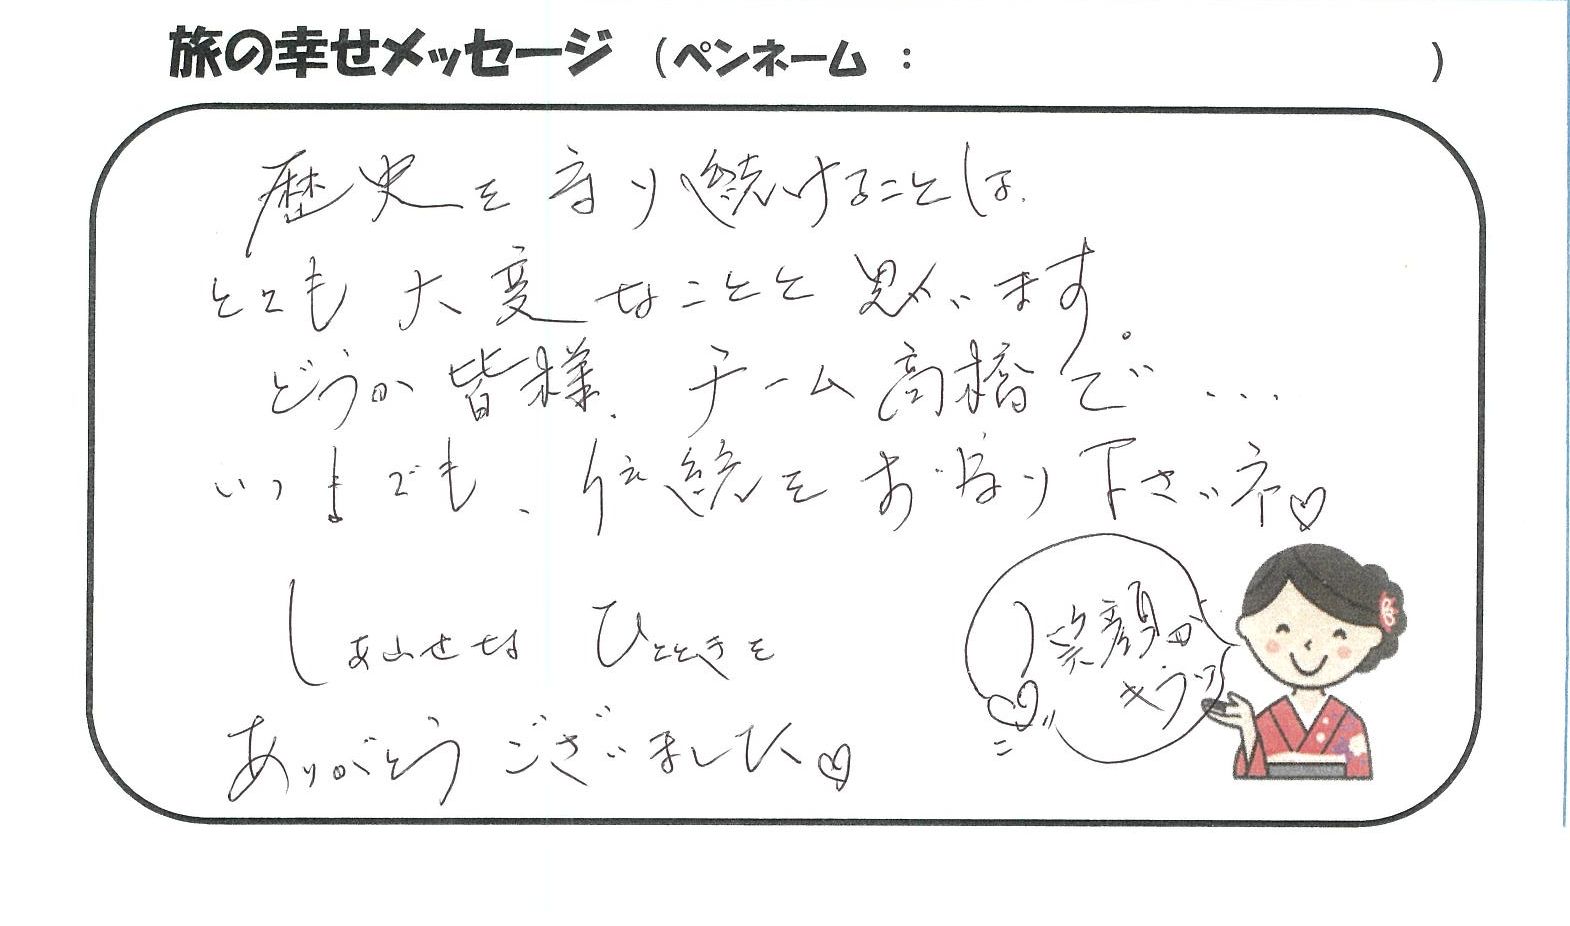 旅の幸せメッセージ （ペンネーム： ）
歴史を守り続けることは、
とても大変なことと思います。
どうか皆様、チーム高橋で…
いつまでも、伝統をお守り下さいネ♡
しあわせなひとときを
ありがとうございました♡
笑顔が